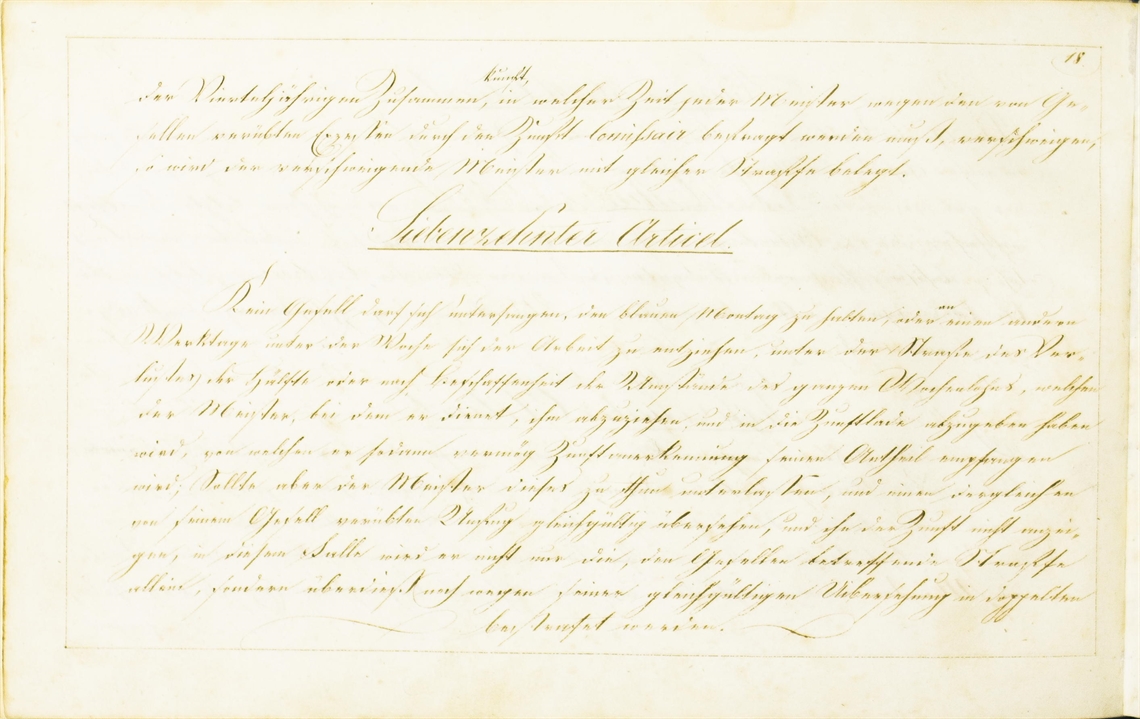 18
kunft,
der Vierteljährigen Zusammen, in welcher Zeit jeder Meister wegen den von Ge-
sellen verübten Exzessen durch den Zunft Comissair befragt werden muß, verschweigen,
so wird der verschweigende Meister mit gleicher Straffe belegt.
Siebenzehnter Articel.
Kein Gesell darf sich unterfangen, den blauen Montag zu halten, oder an einen andern
Werktage unter der Woche sich der Arbeit zu entziehen, unter der Straffe des Ver-
lustes der Hälfte oder nach Beschaffenheit der Umstände des ganzen Wochenlohns, welchen
der Meister, bei dem er dienet, ihm abzuziehen, und in die Zunftlade abzugeben haben
wird, von welchen er sodann vermög Zunftanerkennung seinen Antheil empfangen
wird; Sollte aber der Meister dieses zu thun unterlassen, und einen dergleichen
von seinem Gesell verübten Unfug gleichgültig übersehen, und ihn der Zunft nicht anzei-
gen, in diesem Falle wird er nicht nur die, den Gesellen betreffende Straffe
allein, sondern überdieß noch wegen seiner gleichgültigen Uebersehung in doppelten
bestrafet werden.